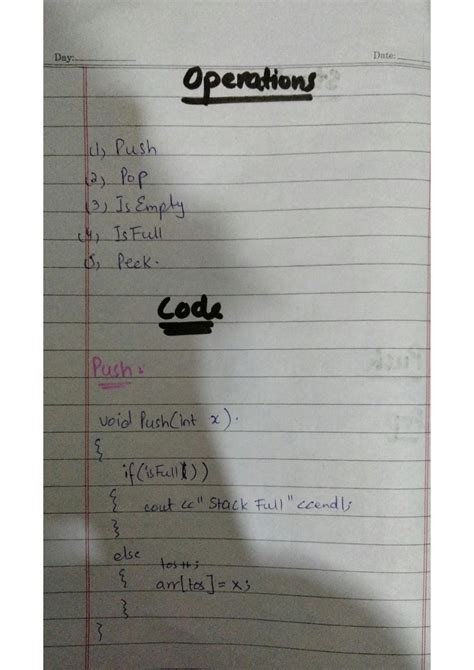 Day:
Date:
Operations
(1) Push
(2) Pop
(3) Is Empty
(4) IsFull
(5) Peek.
Code
Push:
void Push(int x).
{
if(isFull())
{ cout << "Stack Full" <<endl;
}
else
tos++;
{ arr[tos] = x;
}
}